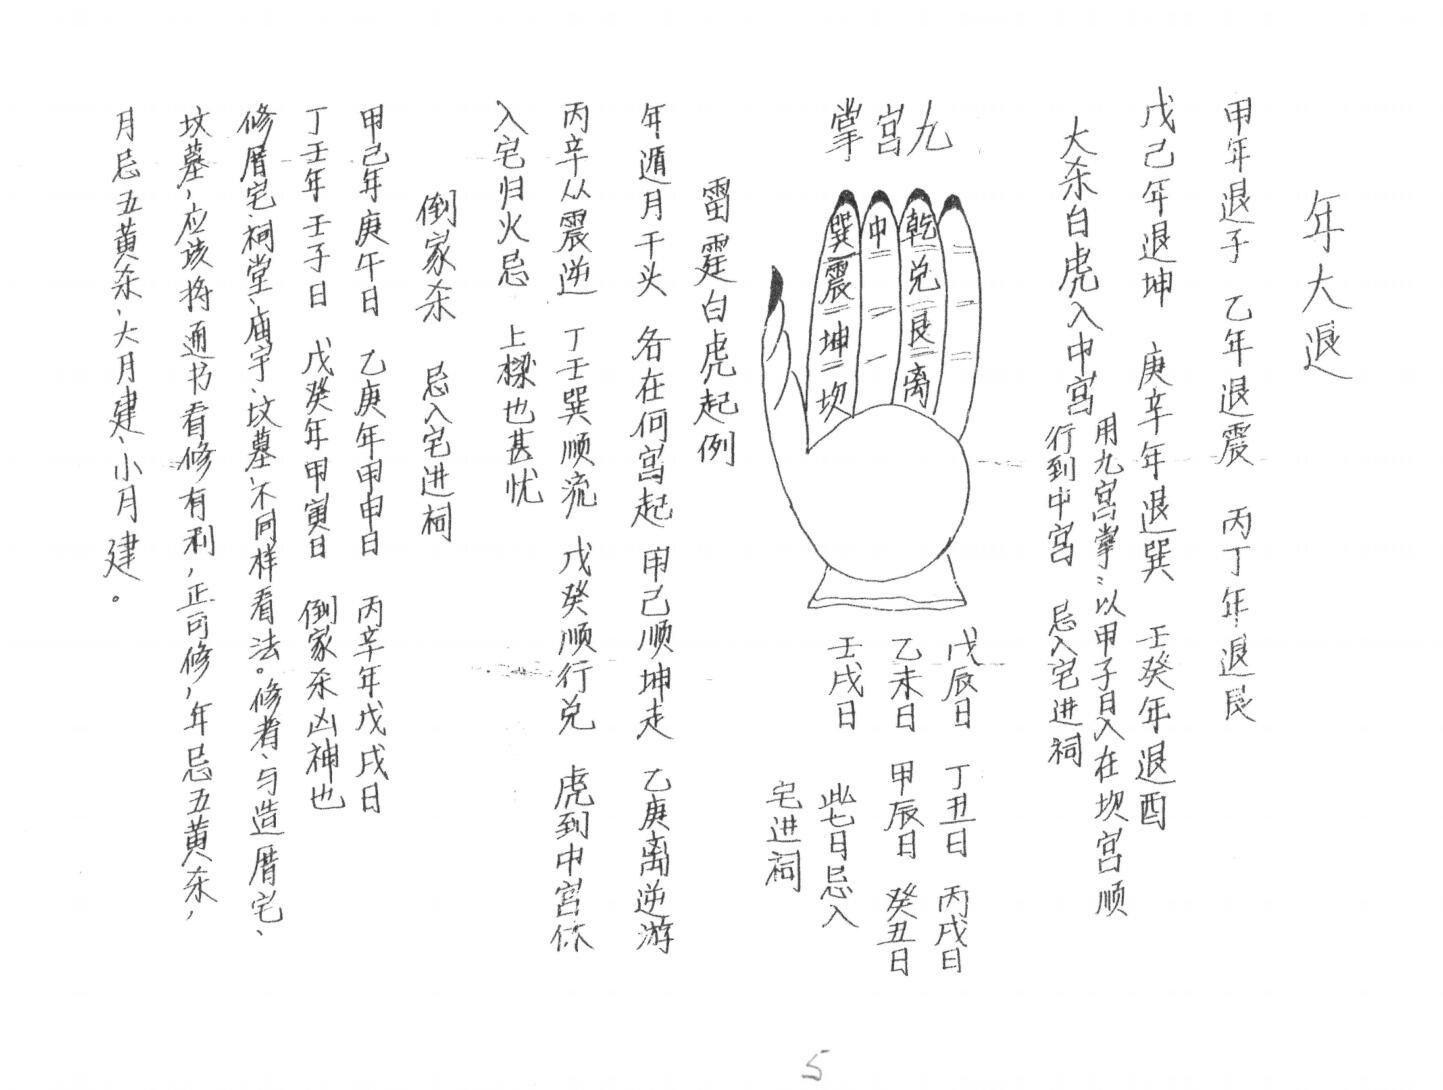 年大退
甲年退子　乙年退震　丙丁年退艮
戊己年退坤　庚辛年退巽　壬癸年退酉
大杀白虎入中宫
用九宫掌：以甲子日入在坎宫顺
行到中宫　忌入宅进祠
九宫掌
乾兑艮离
中
巽震坤坎
戊辰日　丁丑日　丙戌日
乙未日　甲辰日　癸丑日
壬戌日　此七日忌入
宅进祠
雷霆白虎起例
年遁月干头　各在何宫起　甲己顺坤走　乙庚离逆游
丙辛从震逆　丁壬巽顺流　戊癸顺行兑　虎到中宫休
入宅归火忌　上樑也甚忧
倒家杀　忌入宅进祠
甲己年庚午日　乙庚年甲申日　丙辛年戊戌日
丁壬年壬子日　戊癸年甲寅日　倒家杀凶神也
修厝宅、祠堂、庙宇、坟墓、不同样看法。修者、与造厝宅、
坟墓，应该将通书看修有利，正可修，年忌五黄杀，
月忌五黄杀，大月建、小月建。
5